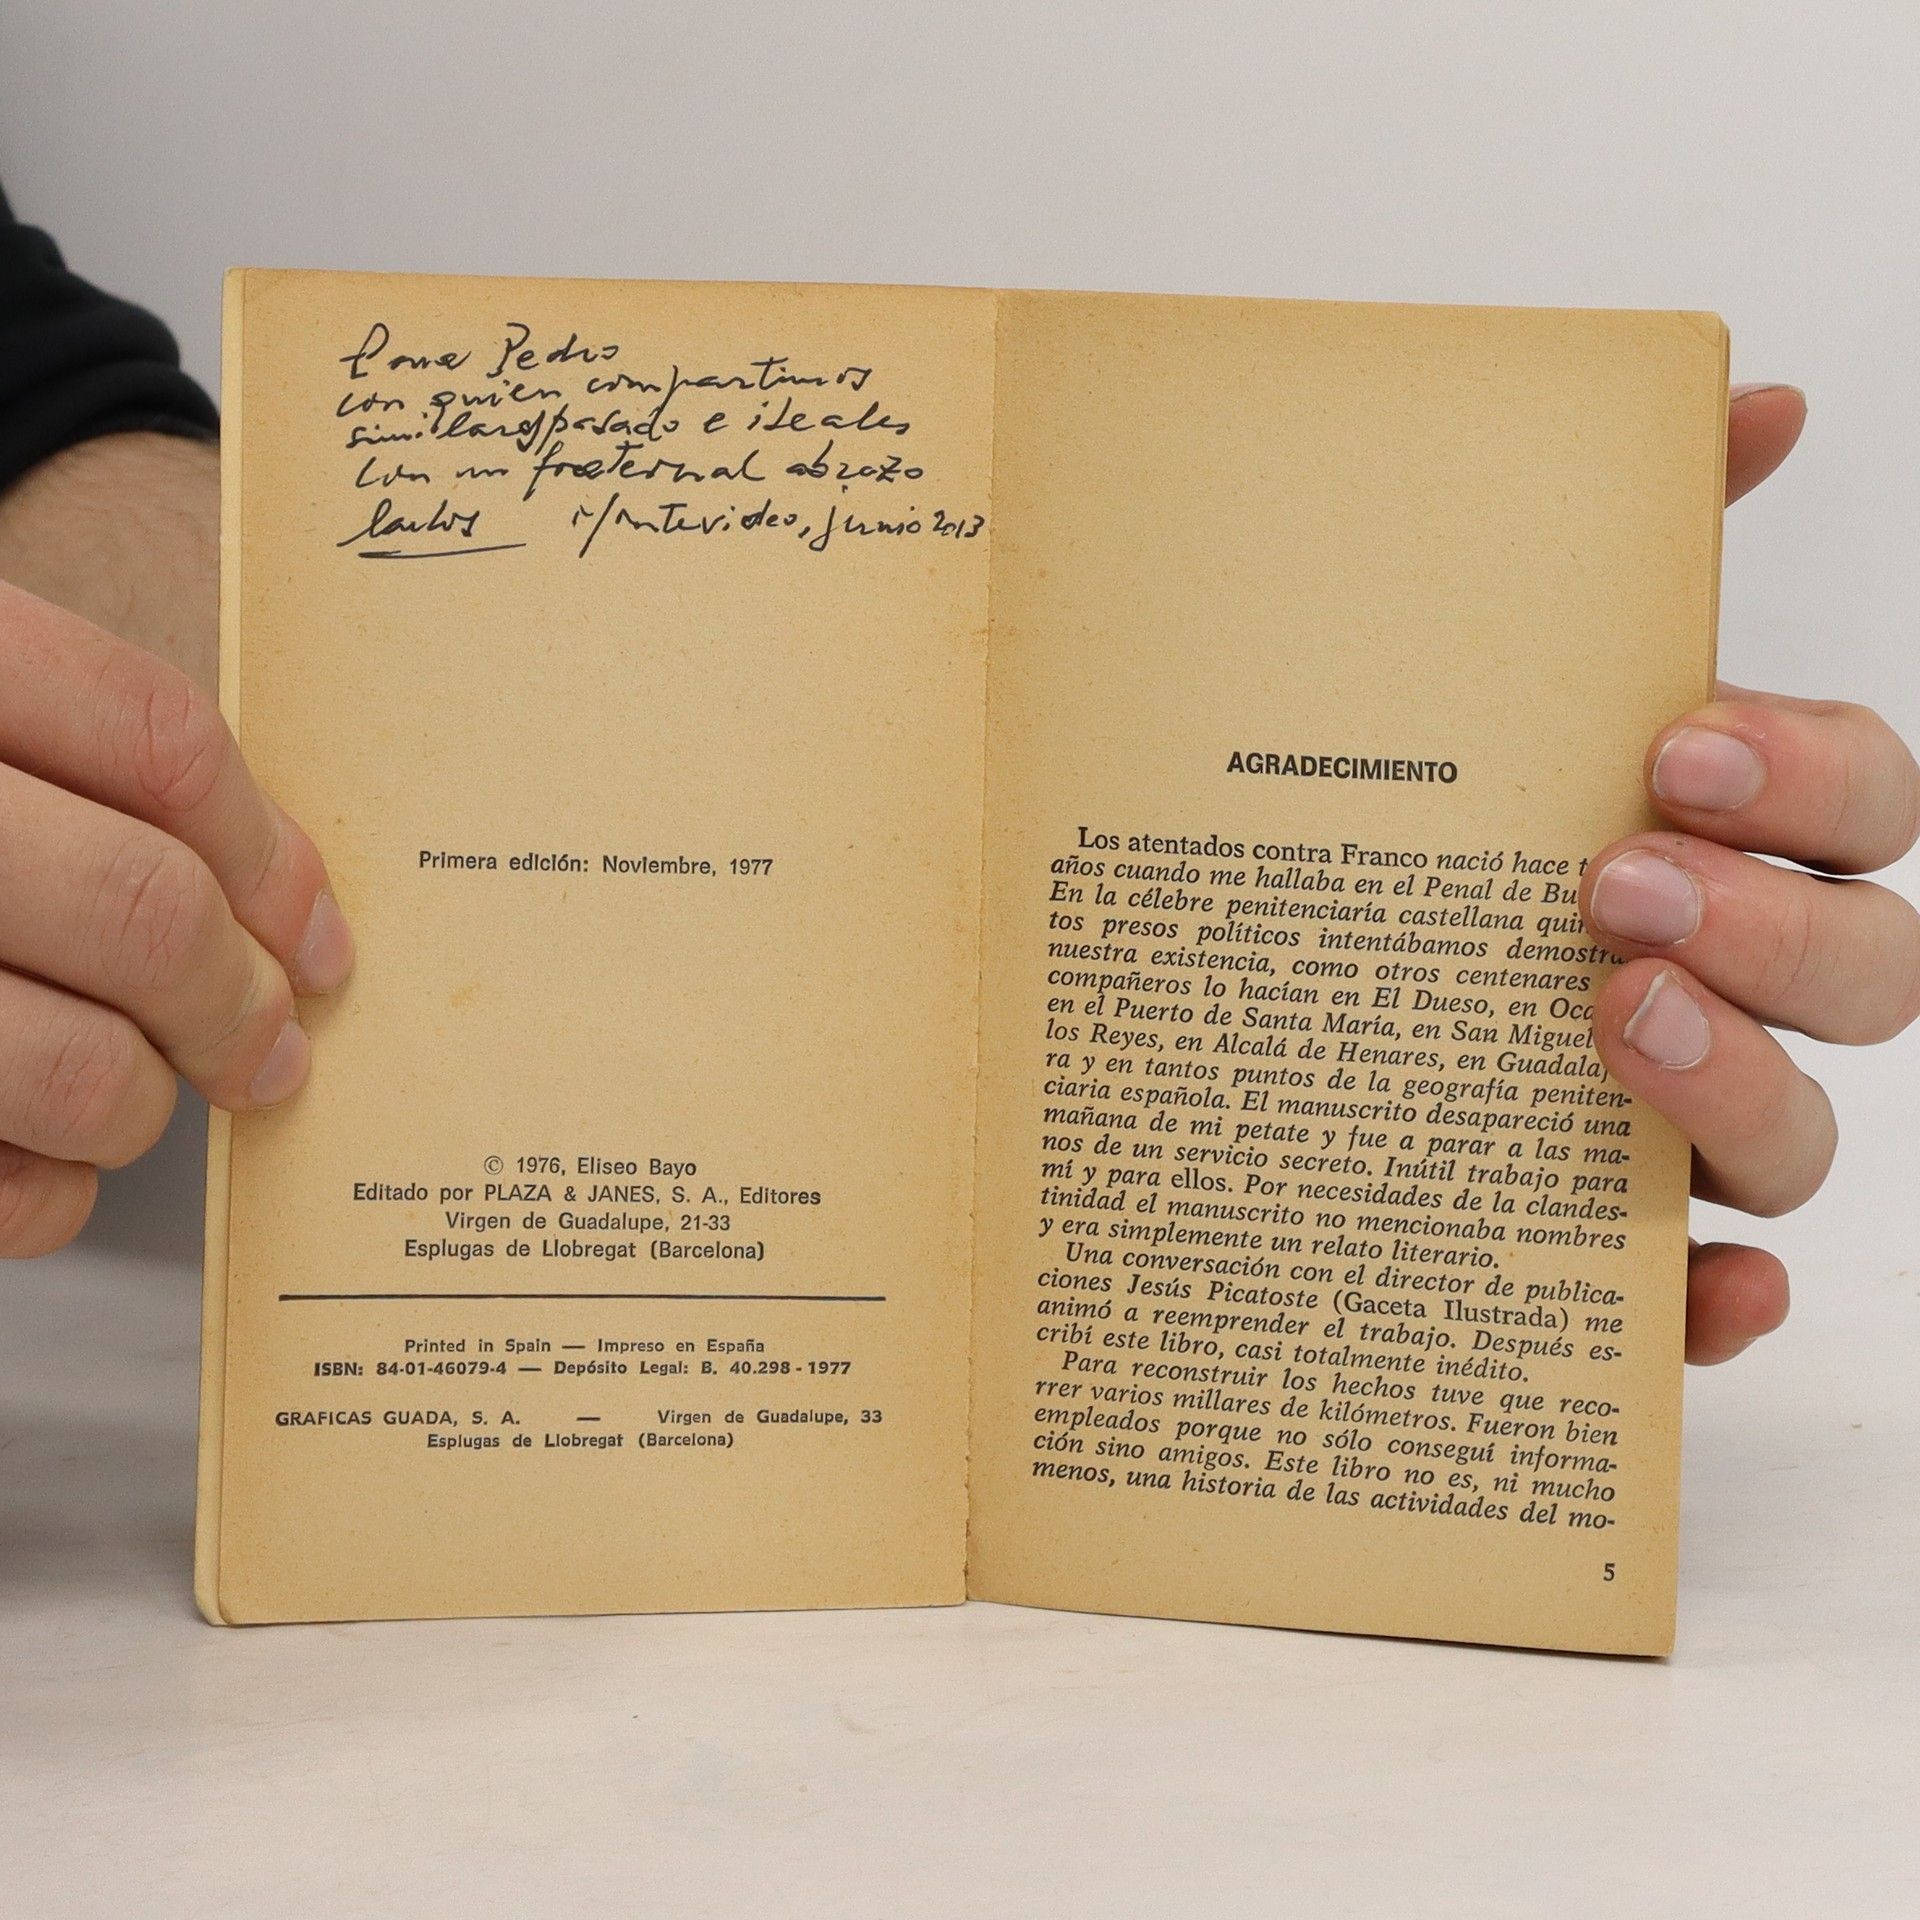 Para Pedro
con quien compartimos
similares pasado e ideales
con un fraternal abrazo
Carlos Montevideo, junio 2013
Primera edición: Noviembre, 1977
© 1976, Eliseo Bayo
Editado por PLAZA & JANES, S. A., Editores
Virgen de Guadalupe, 21-33
Esplugas de Llobregat (Barcelona)
Printed in Spain — Impreso en España
ISBN: 84-01-46079-4 — Depósito Legal: B. 40.298 - 1977
GRAFICAS GUADA, S. A. — Virgen de Guadalupe, 33
Esplugas de Llobregat (Barcelona)
AGRADECIMIENTO
Los atentados contra Franco nació hace
años cuando me hallaba en el Penal de
En la célebre penitenciaría castellana
tos presos políticos intentábamos
nuestra existencia, como otros centenares
compañeros lo hacían en El Dueso, en
en el Puerto de Santa María, en San Miguel
los Reyes, en Alcalá de Henares, en
ra y en tantos puntos de la geografía peniten-
ciaria española. El manuscrito desapareció una
mañana de mi petate y fue a parar a las ma-
nos de un servicio secreto. Inútil trabajo para
mí y para ellos. Por necesidades de la clandes-
tinidad el manuscrito no mencionaba nombres
y era simplemente un relato literario.
Una conversación con el director de publica-
ciones Jesús Picatoste (Gaceta Ilustrada) me
animó a reemprender el trabajo. Después es-
cribí este libro, casi totalmente inédito.
Para reconstruir los hechos tuve que reco-
rrer varios millares de kilómetros. Fueron bien
empleados porque no sólo conseguí informa-
ción sino amigos. Este libro no es, ni mucho
menos, una historia de las actividades del mo-
5